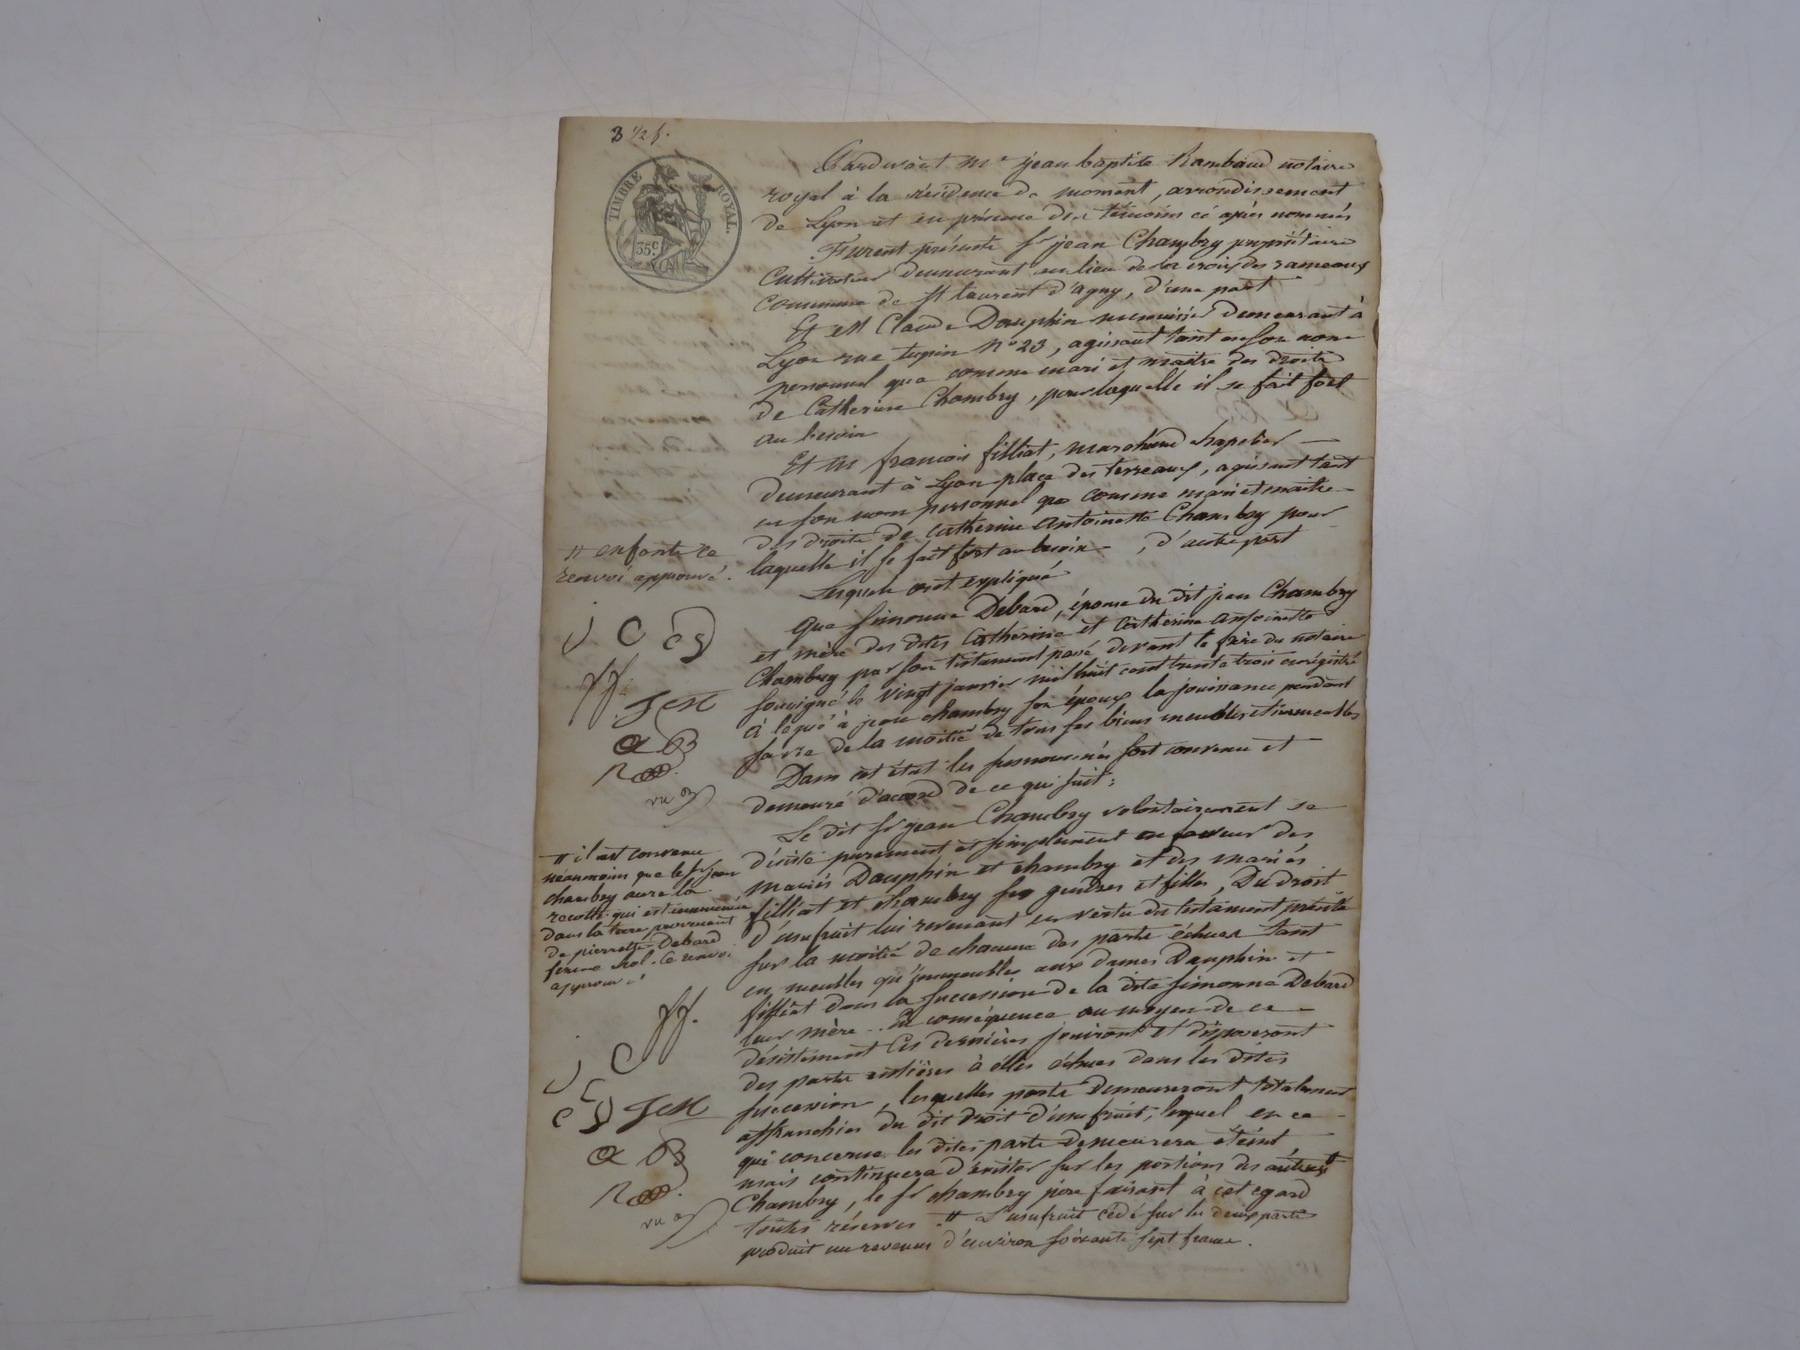 3 1/2 f.
TIMBRE ROYAL.
35 c
Pardevant Me jean baptiste Rambaud notaire
royal à la résidence de mornant, arrondissement
de Lyon et en présence des témoins ci après nommés
Furent présents Sr jean Chambry propriétaire
Cultivateur demeurant au lieu de la croix des rameaux
Commune de St laurent d'agny, d'une part
Et M Claude Dauphin menuisier demeurant à
Lyon rue tupin No 23, agissant tant en son nom
personnel que comme mari et maitre des droits
de Catherine Chambry, pour laquelle il se fait fort
au besoin
Et M francois filliat, marchand chapelier
demeurant à Lyon place des terreaux, agissant tant
en son nom personnel que comme mari et maitre
des droits de catherine antoinette Chambry pour
laquelle il se fait fort au besoin, d'autre part
Lesquels ont expliqué
que Simonne Debard, épouse du dit jean Chambry
et mère des dites Catherine et Catherine antoinette
Chambry par son testament passé devant le père du notaire
soussigné le vingt janvier mil huit cent trente trois enrégistré
à légué à jean chambry son époux la jouissance pendant
sa vie de la moitié de tous ses biens meubles et immeubles
Dans cet état les susnommés sont convenu et
demeuré d'accord de ce qui suit:
Le dit Sr jean Chambry volontairement se
désiste purement et simplement en faveur des
mariés Dauphin et chambry et des mariés
filliat et chambry ses gendres et filles, Du droit
d'usufruit lui revenant en vertu du testament précité
sur la moitié de chacune des parts échues tant
en meubles qu'immeubles aux dames Dauphin et
filliat dans la succession de la dite simonne Debard
leur mère. En conséquence au moyen de ce
désistement ces dernières jouiront et disposeront
des parts entières à elles échues dans les dites
succession, lesquelles parts demeureront totalement
affranchies du dit droit d'usufruit, lequel en ce
qui concerne les dites parts demeurera éteint
mais continuera d'exister sur les portions des autres #
Chambry, le Sr chambry père faisant à cet egard
toutes réserves. # L'usufruit cédé sur les deux parts
produit un revenu d'environ soixante sept francs.
# enfants ce
renvoi approuvé.
J C
ff.
JCM
R
# il est convenu
néanmoins que le Sr jean
chambry aura la
recolte qui est
dans la terre provenant
de pierrette Debard
femme hol. Ce renvoi
approuvé
ff.
J C
JCM
R